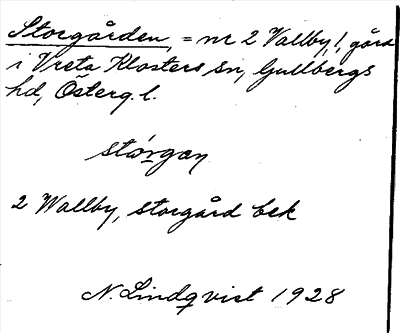 Storgården, = nr 2 Vallby, !, gård
i Vreta Klosters sn, Gullbergs
hd, Österg. l.
stórgan
2 Wallby, storgård bek
N. Lindqvist 1928